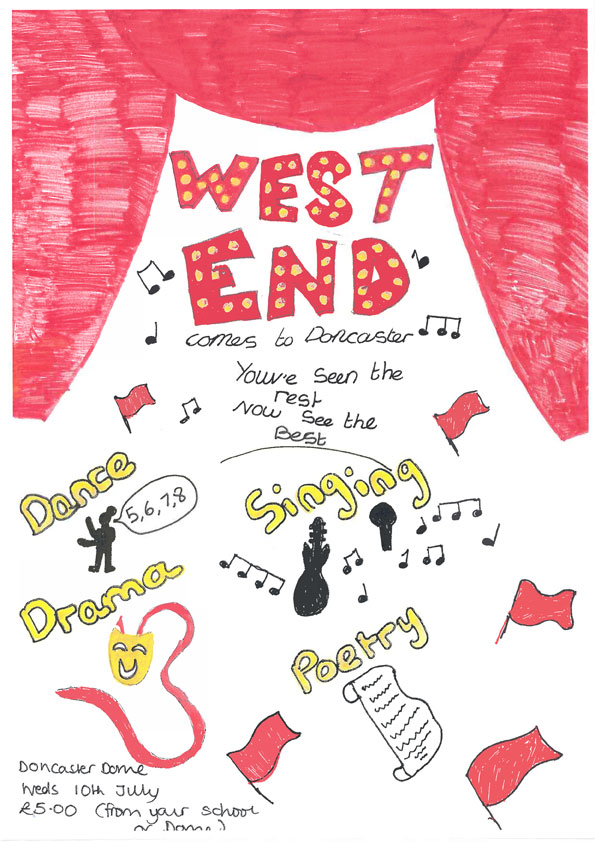 WEST
END
comes to Doncaster
Youv'e seen the
rest
Now see the
Best
Dance
5,6,7,8
Singing
Drama
Poetry
Doncaster Dome
Weds 10th July
£5.00 (from your school
or Dome)